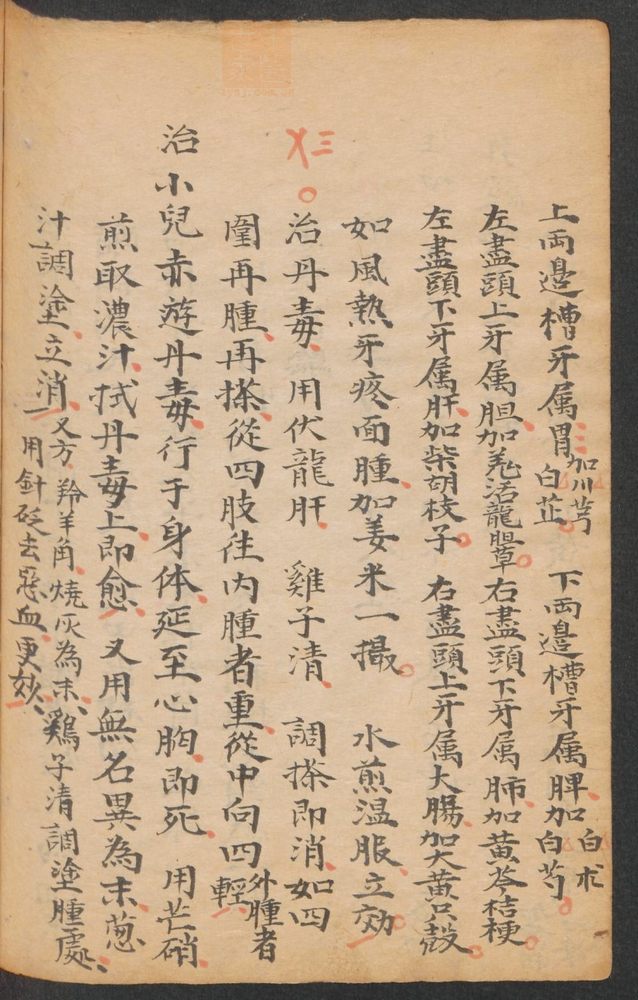 上兩邉槽牙属胃加川芎白芷 下兩邉槽牙属脾加白朮白芍
左盡頭上牙属胆加羌活龍胆草 右盡頭下牙属肺加黄芩桔梗
左盡頭下牙属肝加柴胡枝子 右盡頭上牙属大腸加大黄只殼
如風熱牙疼面腫加姜米一撮 水煎温服立効
三
治丹毒 用伏龍肝 雞子清 調搽即消如四
圍再腫再搽從四肢往内腫者重從中向四外腫者輕
治小兒赤遊丹毒行于身体延至心胸即死 用芒硝
煎取濃汁拭丹毒上即愈 又用無名異為末葱
汁調塗立消 又方羚羊角燒灰為末鷄子清調塗腫處
用針砭去惡血更妙